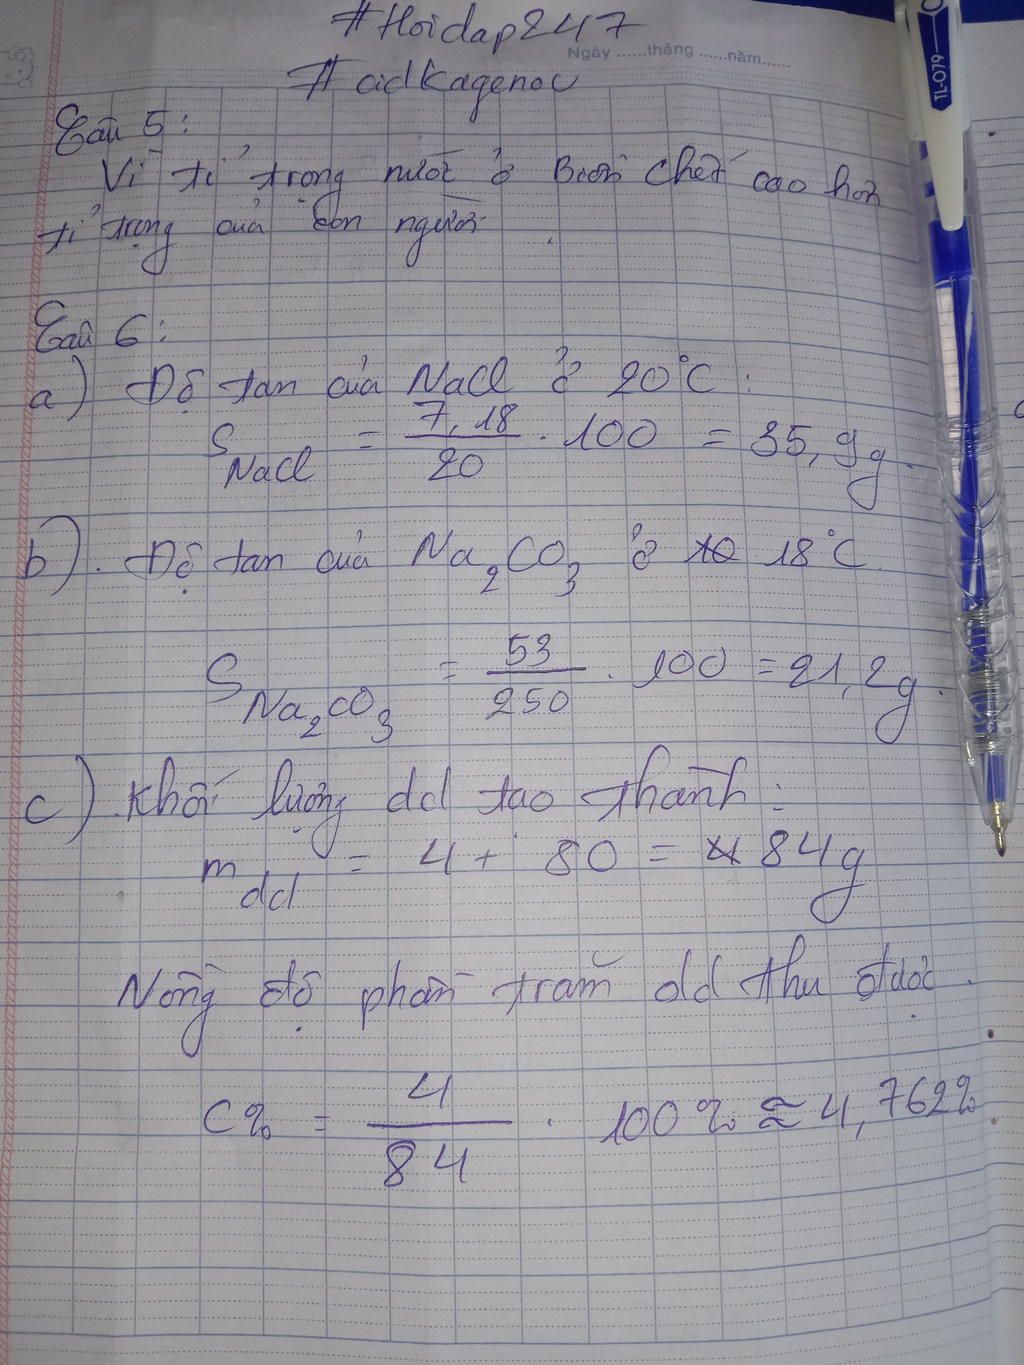 #Hoidap247
Ngày ......tháng ......năm......
#aidkagenou
Câu 5:
Vì tỉ trọng nước ở Biển Chết cao hơn
tỉ trọng của con người.
Câu 6:
a) Độ tan của NaCl ở 20°C:
S NaCl = 7,18/20 . 100 = 35,9g.
b). Độ tan của Na2CO3 ở 18°C.
S Na2CO3 = 53/250 . 100 = 21,2g.
c) Khối lượng dd tạo thành:
m dd = 4 + 80 = 84g
Nồng độ phần trăm dd thu được.
C% = 4/84 . 100% ≈ 4,762%
TL-079